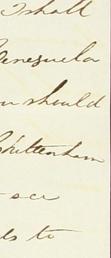 I shall
Venezuela
ou should
Chittenham
see
ls to